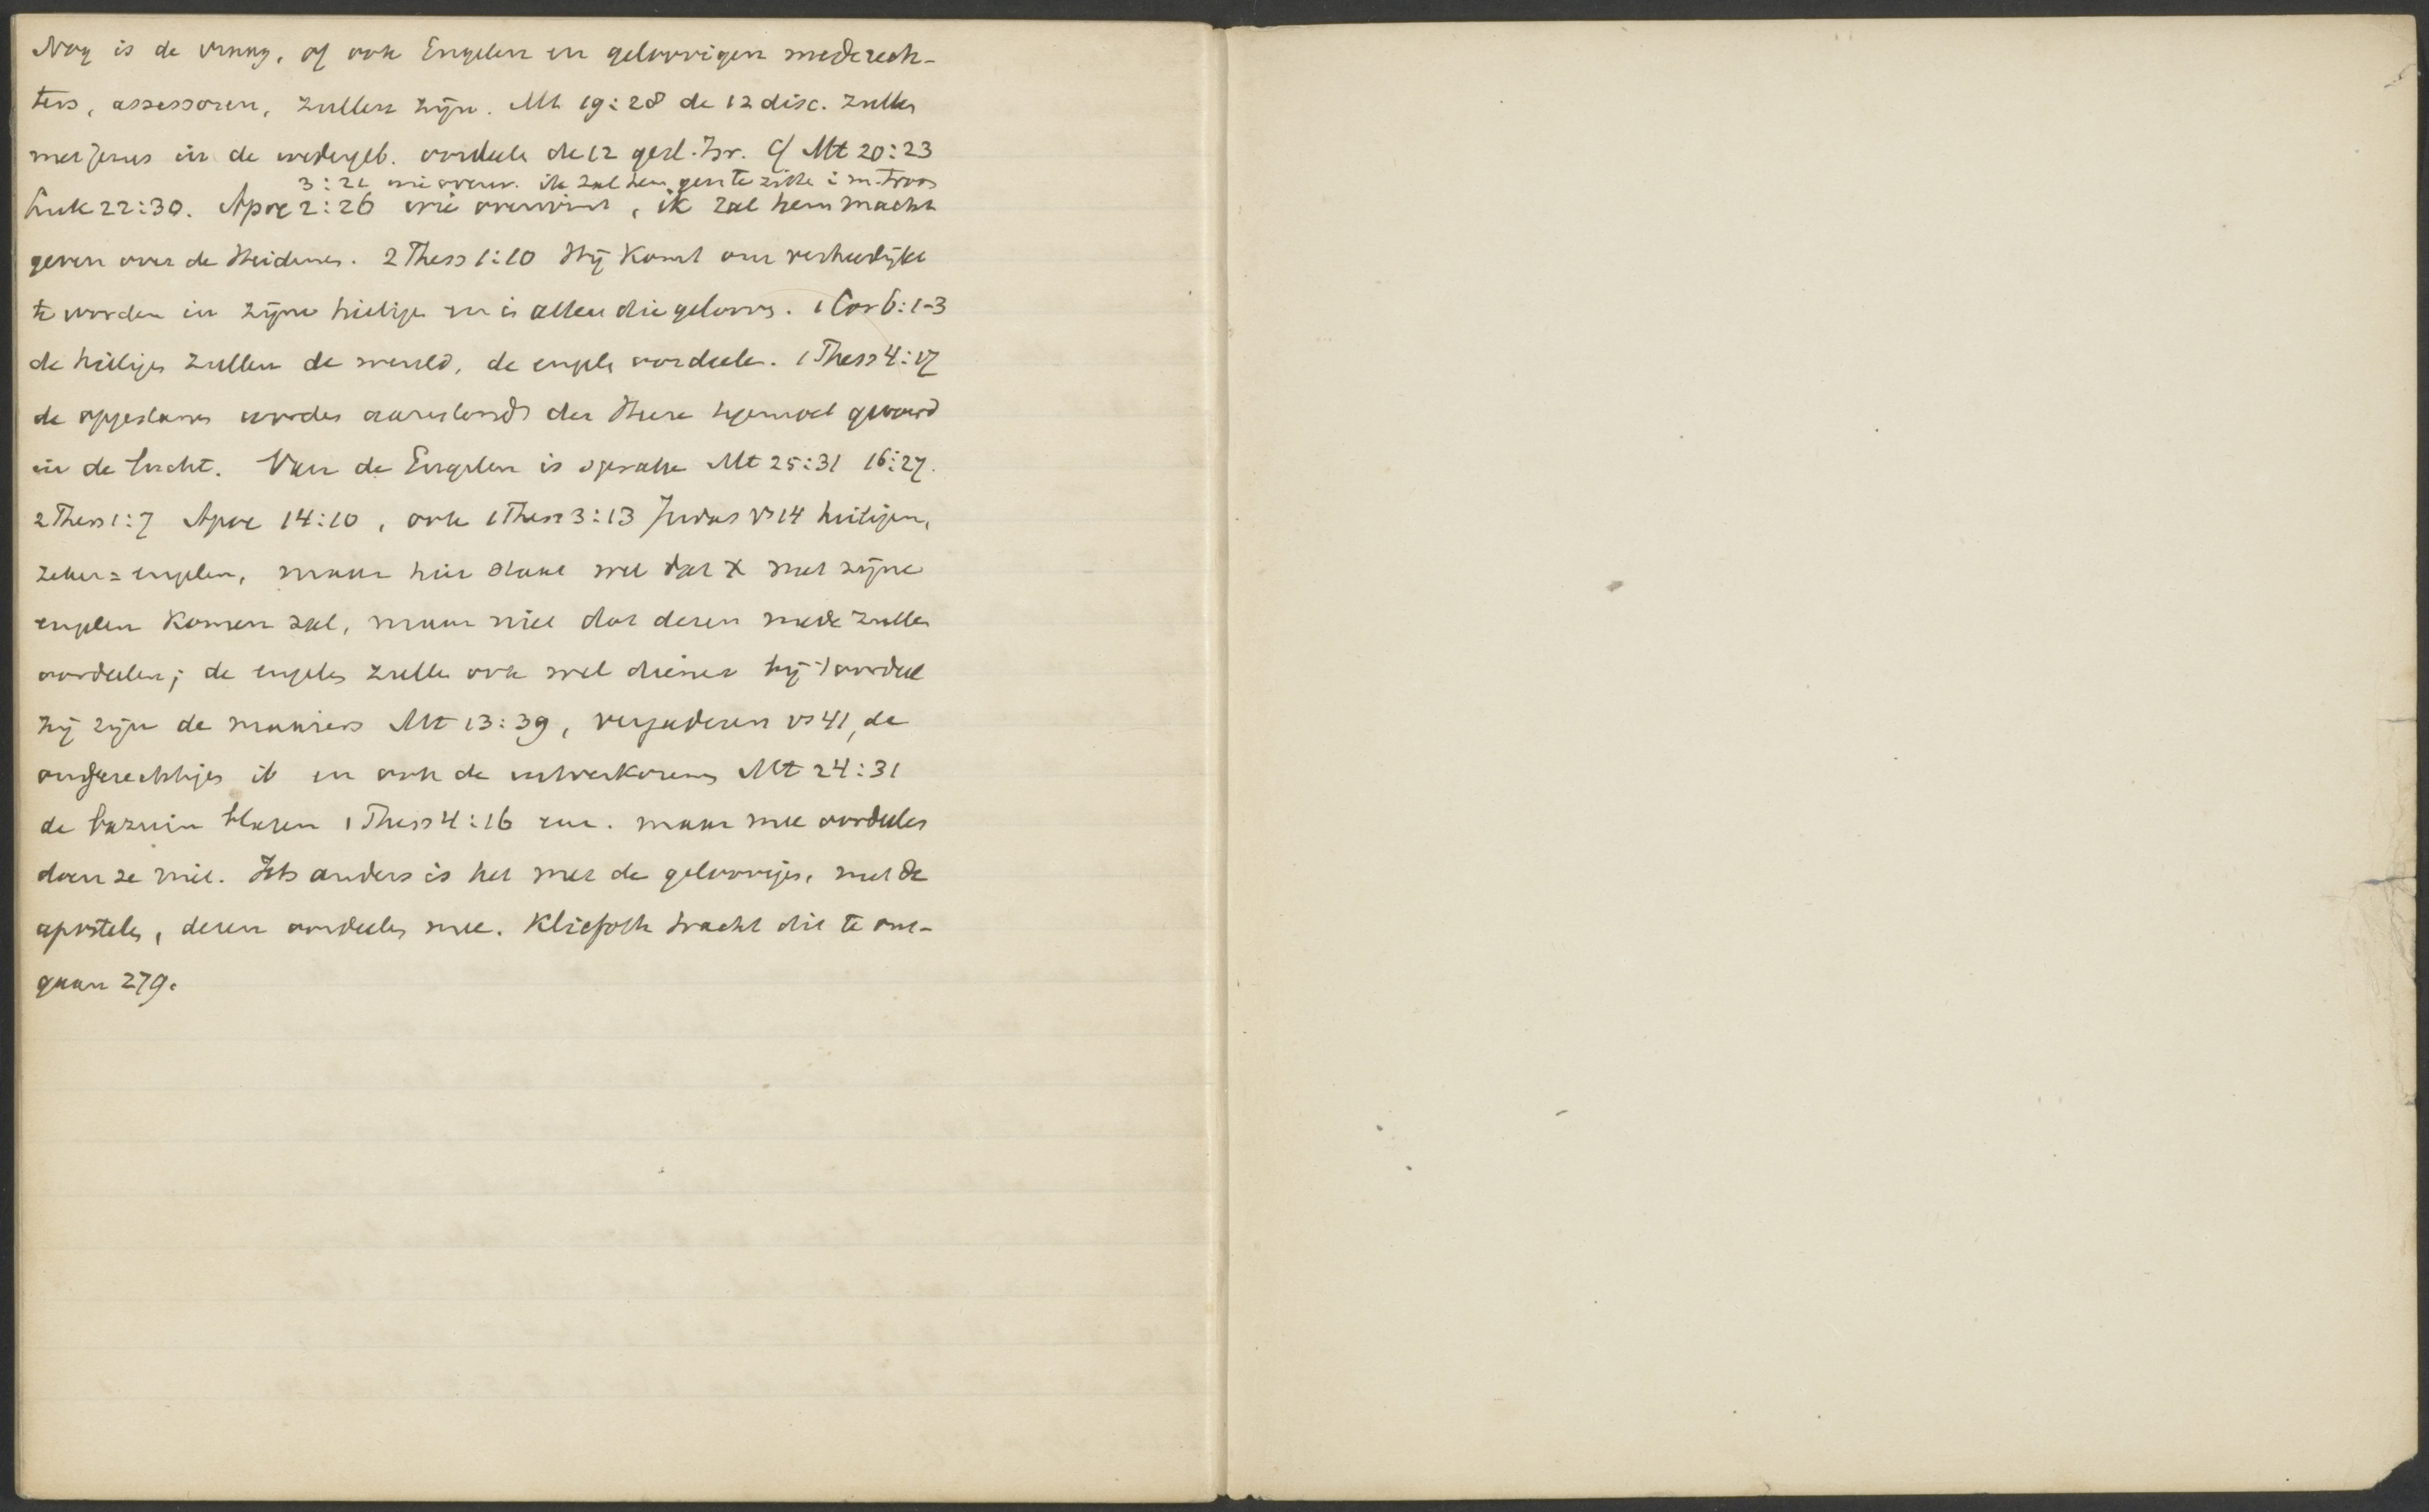 Nog is de vraag, of ook Engelen en geloovigen mederech-
ters, assessoren, zullen zijn. Mt 19:28 de 12 disc. zullen
met Jezus in de wedergeb. oordeele de 12 gesl. Isr. Cf Mt 20:23
3:21 wie overw. ik zal hem geven te zitte i m. troon
Luk 22:30. Apoc 2:26 wie overwint, ik zal hem macht
geven over de Heidenen. 2 Thess 1:10 Hij komt om verheerlijkt
te worden in zijne heilige en in allen die gelooven. 1 Cor 6:1-3
de heiligen zullen de wereld, de engele oordeelen. 1 Thess 4:17
de opgestane worden den Heere tegemoet gevoerd
in de lucht. Van de Engelen is sprake Mt 25:31 16:27.
2 Thess 1:7 Apoc 14:10, ook 1 Thess 3:13 Judas vs 14 heiligen,
zeker = engelen, maar hier staat wel dat X met zijne
engelen komen zal, maar niet dat dezen mede zullen
oordeelen; de engelen zulle ook wel dienen bij 't oordeel
zij zijn de maaiers Mt 13:39, vergaderen vs 41, de
ongerechtigen ib en ook de uitverkorenen Mt 24:31
de bazuin blazen 1 Thess 4:16 enz. maar mee oordeelen
doen ze niet. Iets anders is het met de geloovigen, met de
apostelen, dezen oordeelen mee. Kliefoth tracht dit te om-
gaan 279.